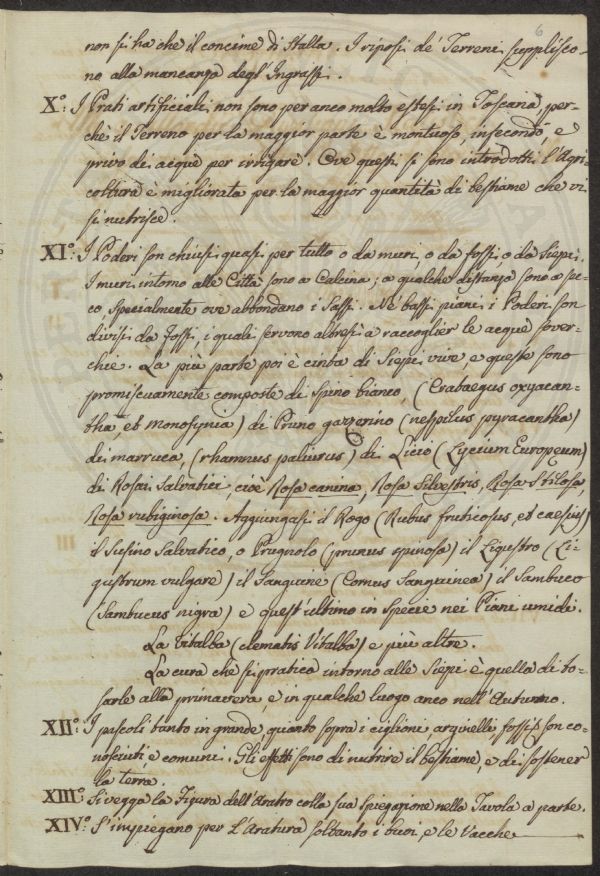 6
non si ha che il concime di Stalla. I riposi de' Terreni supplisco-
no alla mancanza degl' Ingrassi.
X°: I Prati artificiali non sono per anco molto estesi in Toscana, per-
chè il Terreno per la maggior parte è montuoso, infecondo, e
privo di acque per irrigare. Ove questi si sono introdotti l'Agri-
coltura è migliorata per la maggior quantità di bestiame che vi
si nutrisce.
XI°: I Poderi son chiusi quasi per tutto o da muri, o da fossi, o da Siepi.
I muri intorno alle Città sono a Calcina; a qualche distanza sono a sec-
co, specialmente ove abbondano i Sassi. Ne' bassi piani i Poderi son
divisi da Fossi, i quali servono altresì a raccoglier le acque sover-
chie. La più parte poi è cinta di Siepi vive, e queste sono
promiscuamente composte di Spino bianco, (Crataegus oxyacan-
tha, et monogynia) di Pruno gazzerino (nespilus pyracantha)
di marruca, (rhamnus paliurus) di Licio (Lycium Europeum)
di Rosai Salvatici, cioè Rosa canina, Rosa Silvestris, Rosa Stilosa,
Rosa rubiginosa. Aggiungasi il Rogo (Rubus fruticosus, et caesius)
il Susino Salvatico, o Prugnolo (prunus spinosa) il Ligustro (Li-
gustrum vulgare) il Sanguine (Cornus Sanguinea) il Sambuco
(Sambucus nigra) e quest'ultimo in specie nei Piani umidi.
La Vitalba (clematis Vitalba) e più altre.
La cura che si pratica intorno alle Siepi è quella di to-
sarle alla primavera, e in qualche luogo anco nell'Autunno.
XII°: I pascoli tanto in grande, quanto sopra i ciglioni, arginelli, fossi, son co-
nosciuti e comuni. Gli effetti sono di nutrire il bestiame, e di sostener
la terra.
XIII°: Si vegga la Figura dell'Aratro colla sua Spiegazione nella Tavola a parte.
XIV°: S'impiegano per L'Aratura soltanto i buoi, e le Vacche